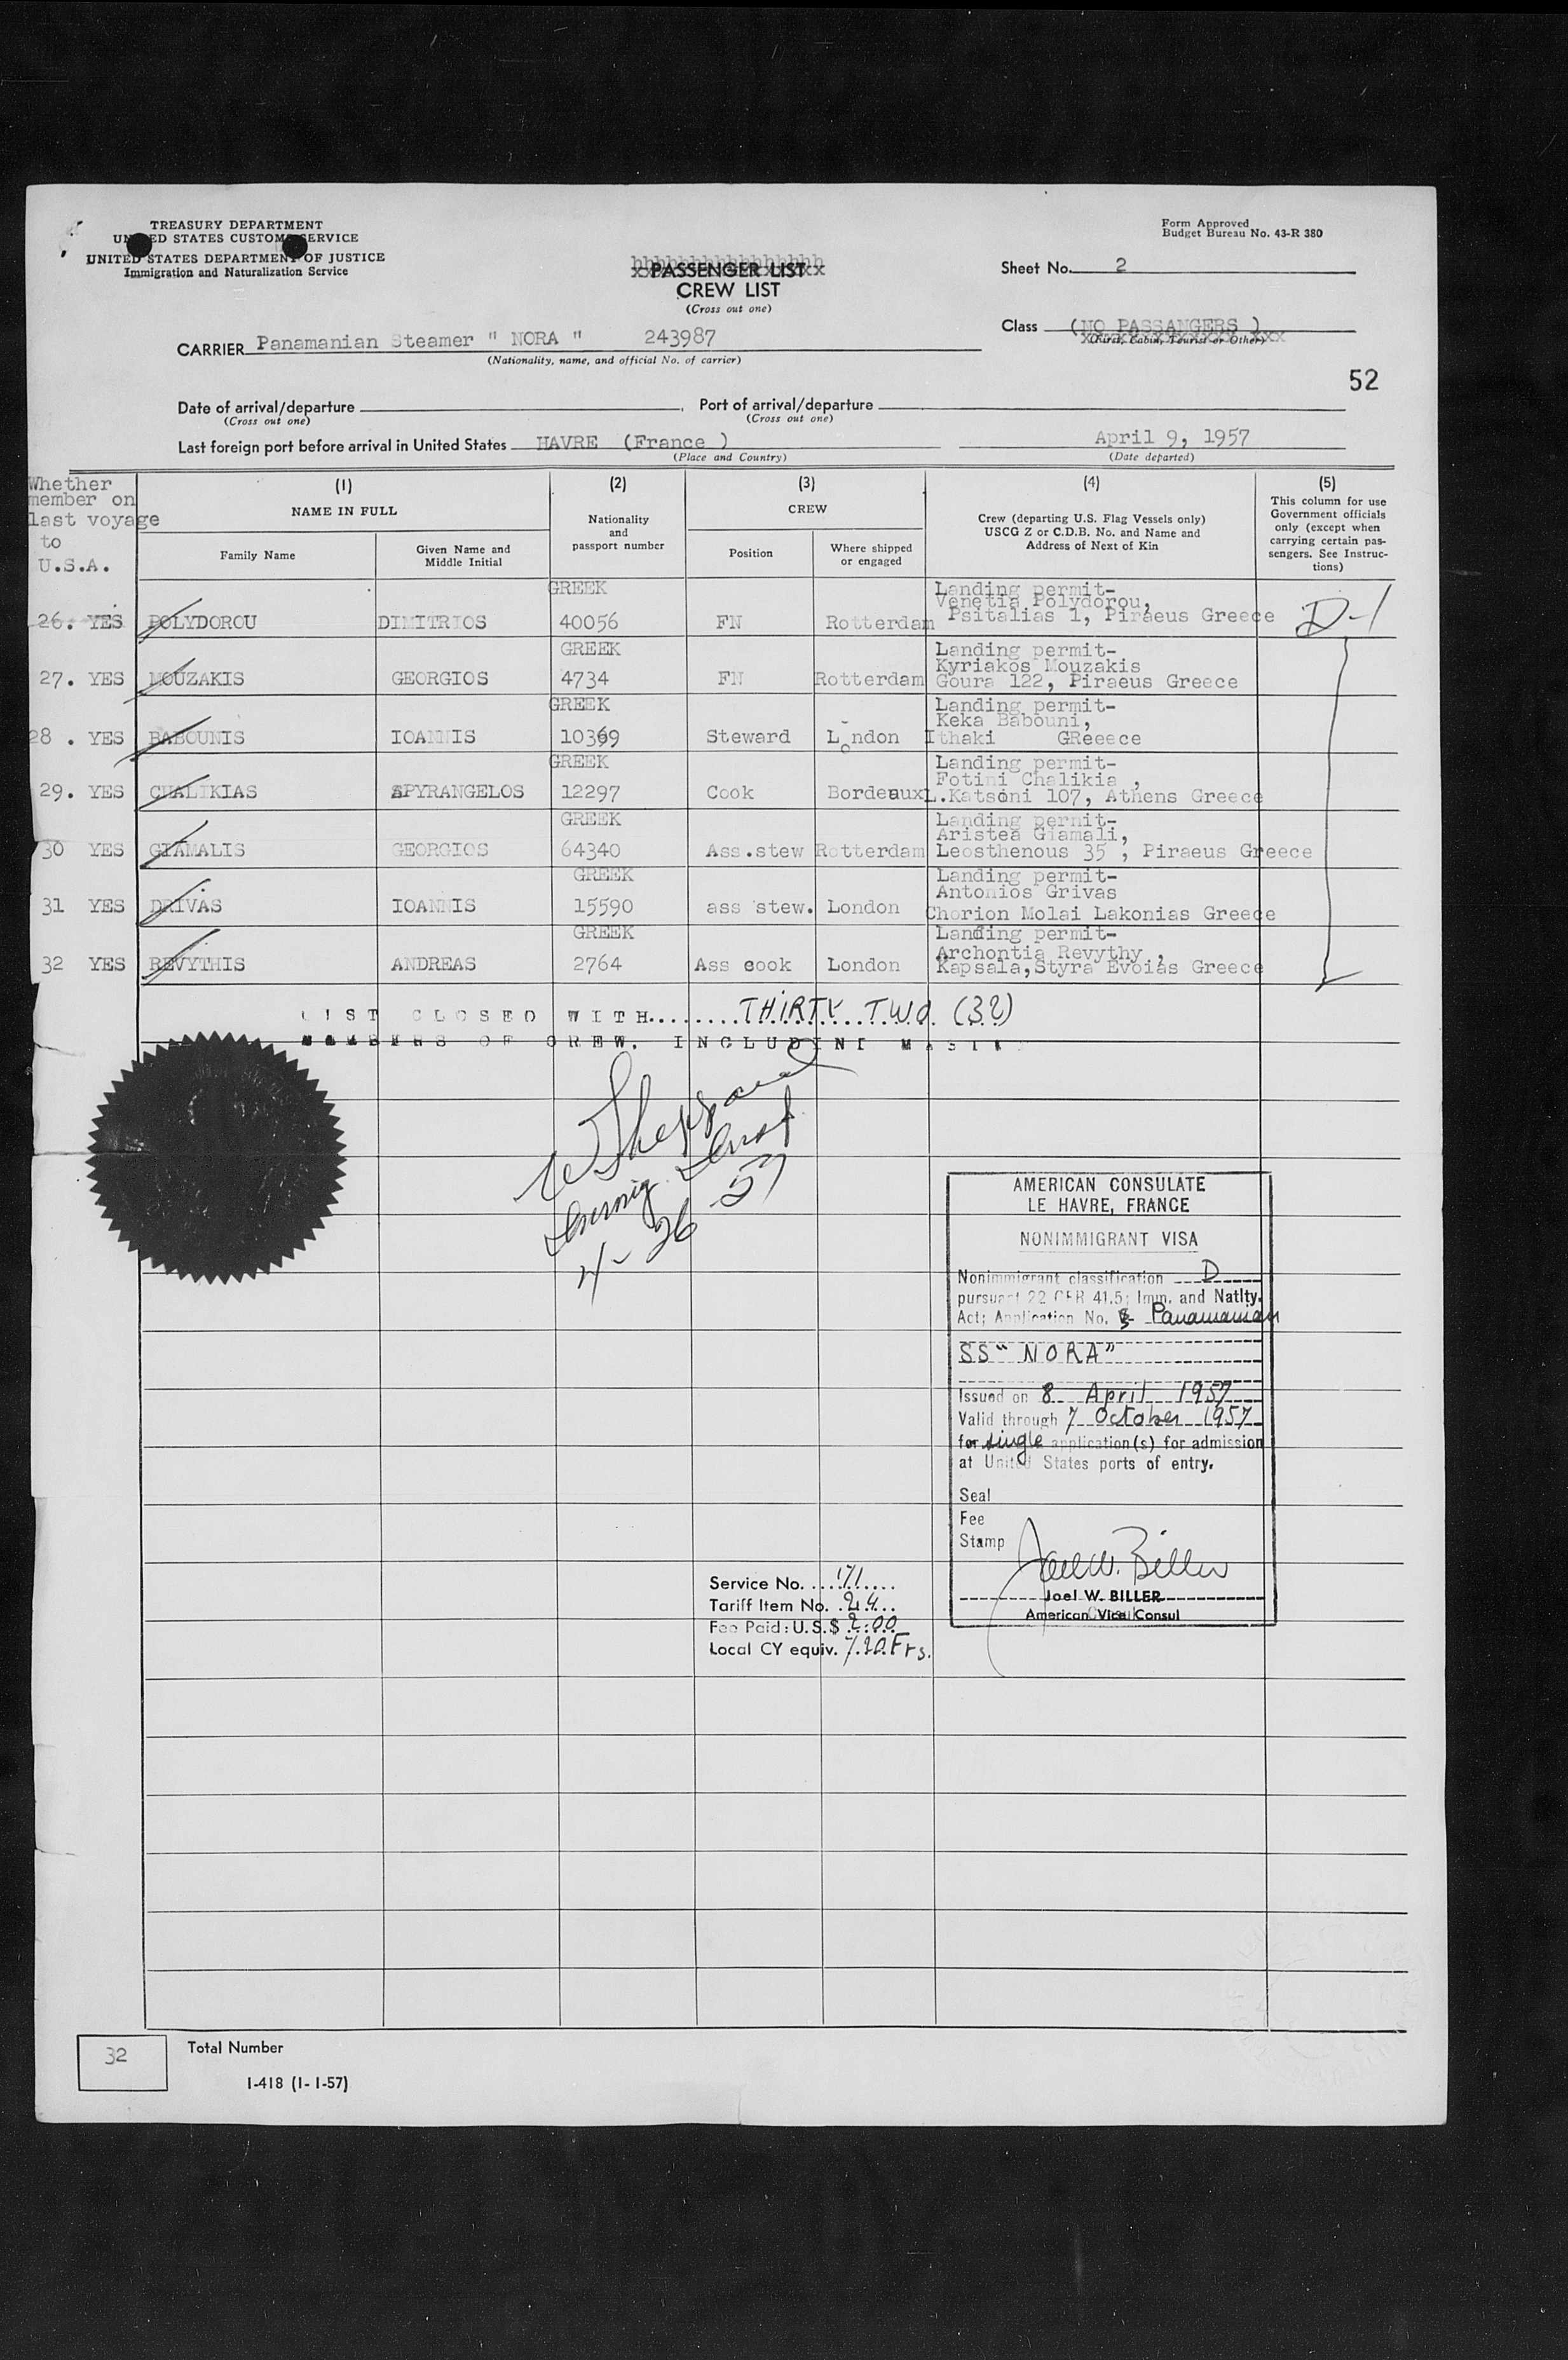 TREASURY DEPARTMENT
UNITED STATES CUSTOMS SERVICE
UNITED STATES DEPARTMENT OF JUSTICE
Immigration and Naturalization Service
Form Approved
Budget Bureau No. 43-R 380
PASSENGER LIST
CREW LIST
(Cross out one)
Sheet No. 2
Class (NO PASSANGERS )
(First, Cabin, Tourist or Other)
CARRIER Panamanian Steamer " NORA " 243987
(Nationality, name, and official No. of carrier)
52
Date of arrival/departure Port of arrival/departure
(Cross out one) (Cross out one)
Last foreign port before arrival in United States HAVRE (France ) April 9, 1957
(Place and Country) (Date departed)
Whether member on last voyage to U.S.A.
(1) NAME IN FULL
Family Name
Given Name and Middle Initial
(2) Nationality and passport number
(3) CREW
Position
Where shipped or engaged
(4) Crew (departing U.S. Flag Vessels only) USCG Z or C.D.B. No. and Name and Address of Next of Kin
(5) This column for use Government officials only (except when carrying certain passengers. See Instructions)
26. YES POLYDOROU DIMITRIOS GREEK 40056 FN Rotterdam Landing permit- Venetia Polydorou, Psitalias 1, Piraeus Greece D-1
27. YES MOUZAKIS GEORGIOS GREEK 4734 FN Rotterdam Landing permit- Kyriakos Mouzakis Goura 122, Piraeus Greece
28 . YES BABOUNIS IOANNIS GREEK 10369 Steward London Landing permit- Keka Babouni, Ithaki GReeece
29. YES CHALIKIAS SPYRANGELOS GREEK 12297 Cook Bordeaux Landing permit- Fotini Chalikia , L.Katsoni 107, Athens Greece
30 YES GIAMALIS GEORGIOS GREEK 64340 Ass.stew Rotterdam Landing permit- Aristea Giamali, Leosthenous 35 , Piraeus Greece
31 YES DRIVAS IOANNIS GREEK 15590 ass stew. London Landing permit- Antonios Grivas Chorion Molai Lakonias Greece
32 YES REVYTHIS ANDREAS GREEK 2764 Ass cook London Landing permit- Archontia Revythy , Kapsala,Styra Evoias Greece
LIST CLOSED WITH........THIRTY TWO (32)
MEMBERS OF CREW, INCLUDING MASTER
Sheppard
Immig. Insp
4-26-57
AMERICAN CONSULATE
LE HAVRE, FRANCE
NONIMMIGRANT VISA
Nonimmigrant classification D
pursuant 22 CFR 41.5; Imm. and Natlty.
Act; Application No. Panamanian
SS "NORA"
Issued on 8 April 1957
Valid through 7 October 1957
for single application(s) for admission
at United States ports of entry.
Seal
Fee
Stamp
Joel W. Biller
Joel W. BILLER
American Vice Consul
Service No. 171
Tariff Item No. 24
Fee Paid: U.S.$ 2.00
Local CY equiv. 720 Frs.
32
Total Number
I-418 (1-1-57)